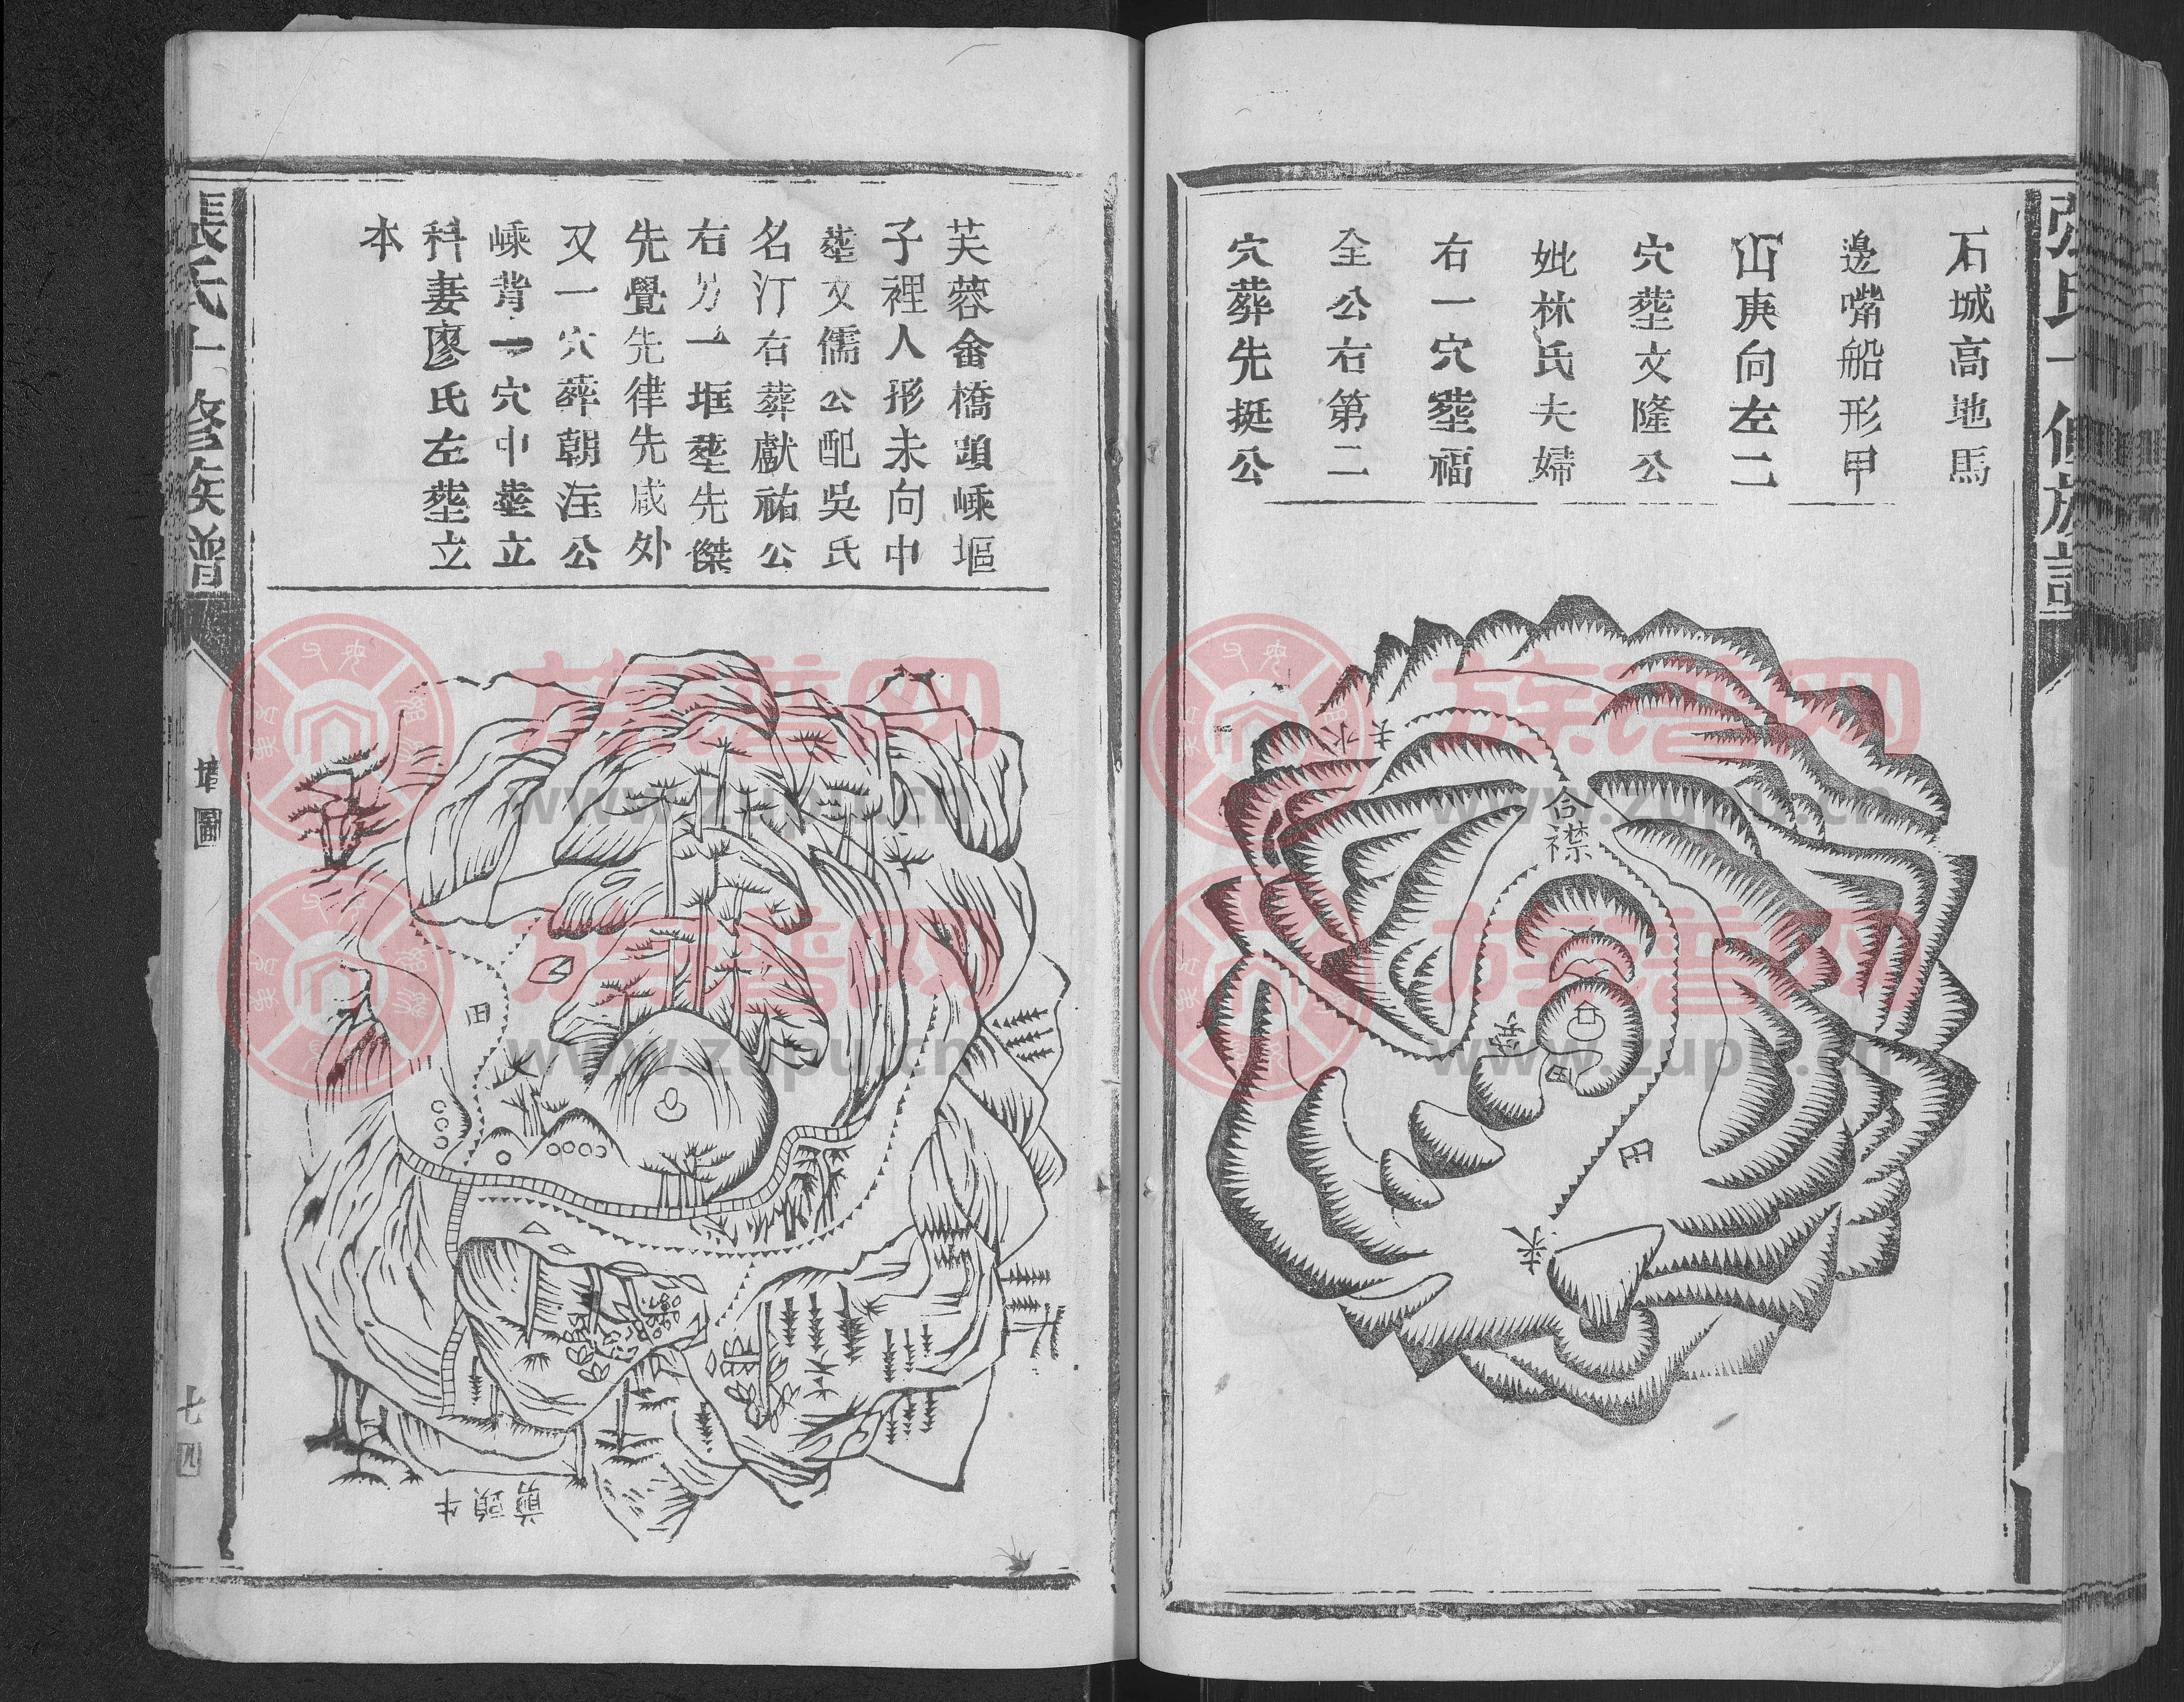 石城高地馬
邊嘴船形甲
山庚向左二
穴塟文隆公
妣林氏夫婦
右一穴塟福
全公右第二
穴葬先挺公
夫水
合襟
田
田
夫水
芙蓉畬橋頭嵊塸
子裡人形未向中
塟文儒公配吳氏
名汀右葬獻祐公
右另一框塟先傑
先覺先律先咸外
又一穴葬朝汪公
嵊背一穴中塟立
科妻廖氏左塟立
本
田
剪頭牛
修族譜
墳圖
族譜网
www.zupu.cn
族譜网
www.zupu.cn
族譜网
www.zupu.cn
族譜网
www.zupu.cn